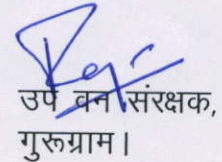 उप वन संरक्षक,
गुरूग्राम।